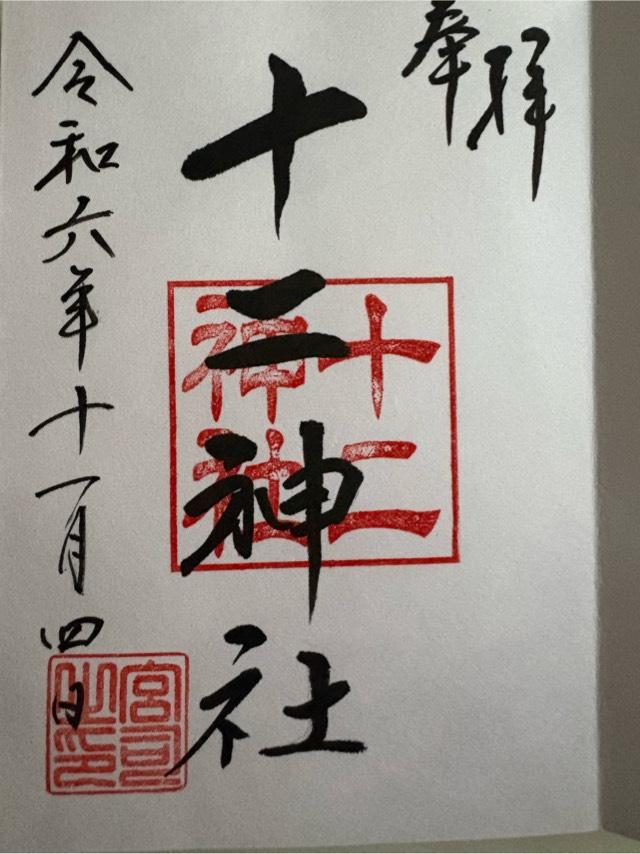 奉拝
十二神社
十二
神社
令和六年十一月四日
宮司
之印